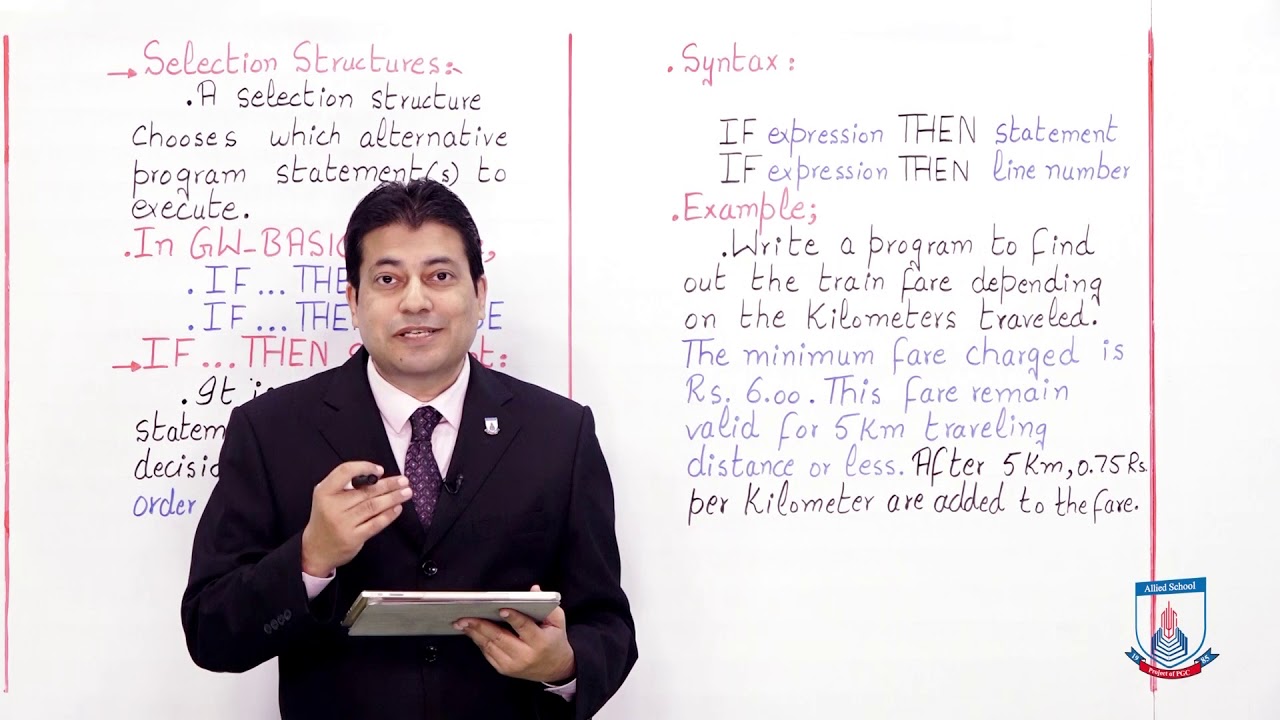 Selection Structures:
. A selection structure
Chooses which alternative
program statement(s) to
execute.
. In GW-BASIC
. IF ... THE
. IF ... THE
IF ... THEN
. It is
statem
decisio
order
. Syntax :
IF expression THEN statement
IF expression THEN line number
. Example;
. Write a program to find
out the train fare depending
on the Kilometers traveled.
The minimum fare charged is
Rs. 6.00. This fare remain
valid for 5 Km traveling
distance or less. After 5 Km, 0.75 Rs.
per Kilometer are added to the fare.
Allied School
19 85
Project of PGC